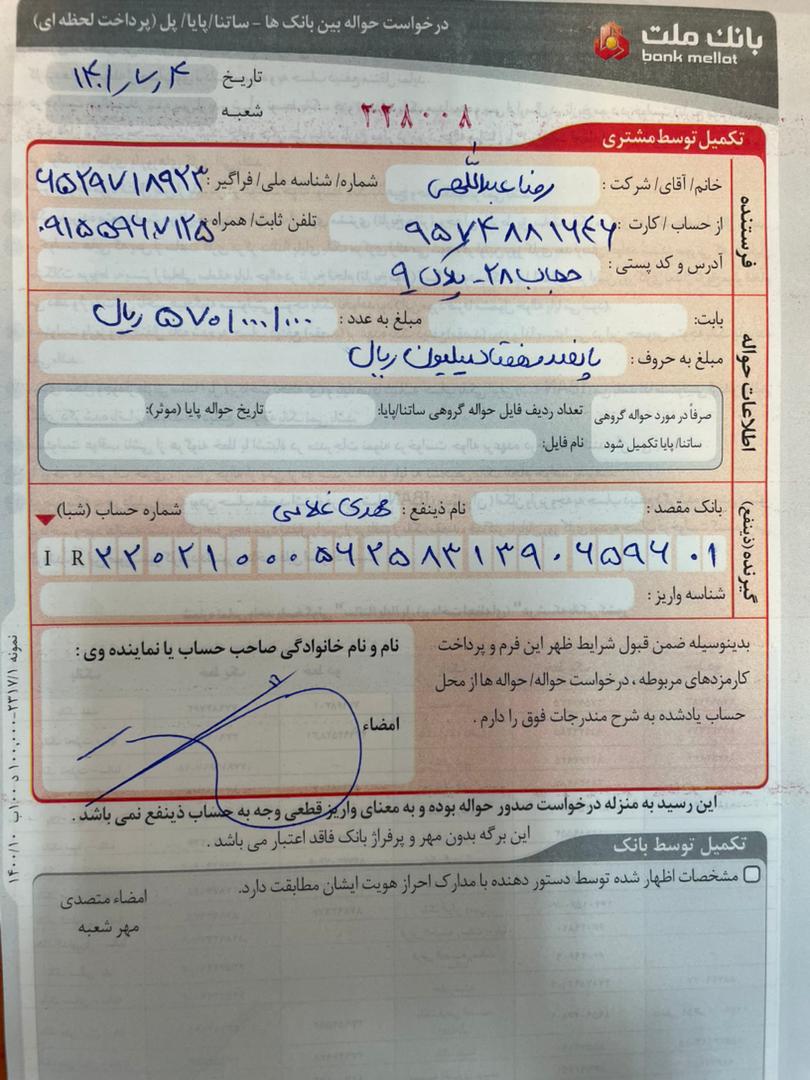 درخواست حواله بین بانک ها - ساتنا/پایا/ پل (پرداخت لحظه ای)
بانک ملت
bank mellat
تاریخ
شعبه
۲۲۸۰۰۸
تکمیل توسط مشتری
فرستنده
خانم/ آقای/ شرکت : رضا عبداللهی شماره/ شناسه ملی/ فراگیر : ۶۵۲۹۷۱۸۹۲۳
از حساب / کارت : ۹۵۷۴۸۸۱۶۴۶ تلفن ثابت/ همراه : ۰۹۱۵۵۹۶۷۱۲۵
آدرس و کد پستی : ۲۸ - پلاک ۹
اطلاعات حواله
بابت: مبلغ به عدد : ۵۷۰/۰۰۰/۰۰۰ ریال
مبلغ به حروف : پانصد و هفتاد میلیون ریال
صرفاً در مورد حواله گروهی ساتنا/ پایا تکمیل شود
تعداد ردیف فایل حواله گروهی ساتنا/پایا: تاریخ حواله پایا (موثر):
نام فایل:
گیرنده (ذینفع)
بانک مقصد : نام ذینفع : مهدی غلامی شماره حساب (شبا)
I R ۲۲۰۲۱۰۰۰۵۶۲۵۸۳۱۳۹۰۶۵۹۶۰۱
شناسه واریز :
بدینوسیله ضمن قبول شرایط ظهر این فرم و پرداخت
کارمزدهای مربوطه ، درخواست حواله/ حواله ها از محل
حساب یادشده به شرح مندرجات فوق را دارم .
نام و نام خانوادگی صاحب حساب یا نماینده وی :
امضاء
این رسید به منزله درخواست صدور حواله بوده و به معنای واریز قطعی وجه به حساب ذینفع نمی باشد .
این برگه بدون مهر و پرفراژ بانک فاقد اعتبار می باشد .
تکمیل توسط بانک
مشخصات اظهار شده توسط دستور دهنده با مدارک احراز هویت ایشان مطابقت دارد.
امضاء متصدی
مهر شعبه